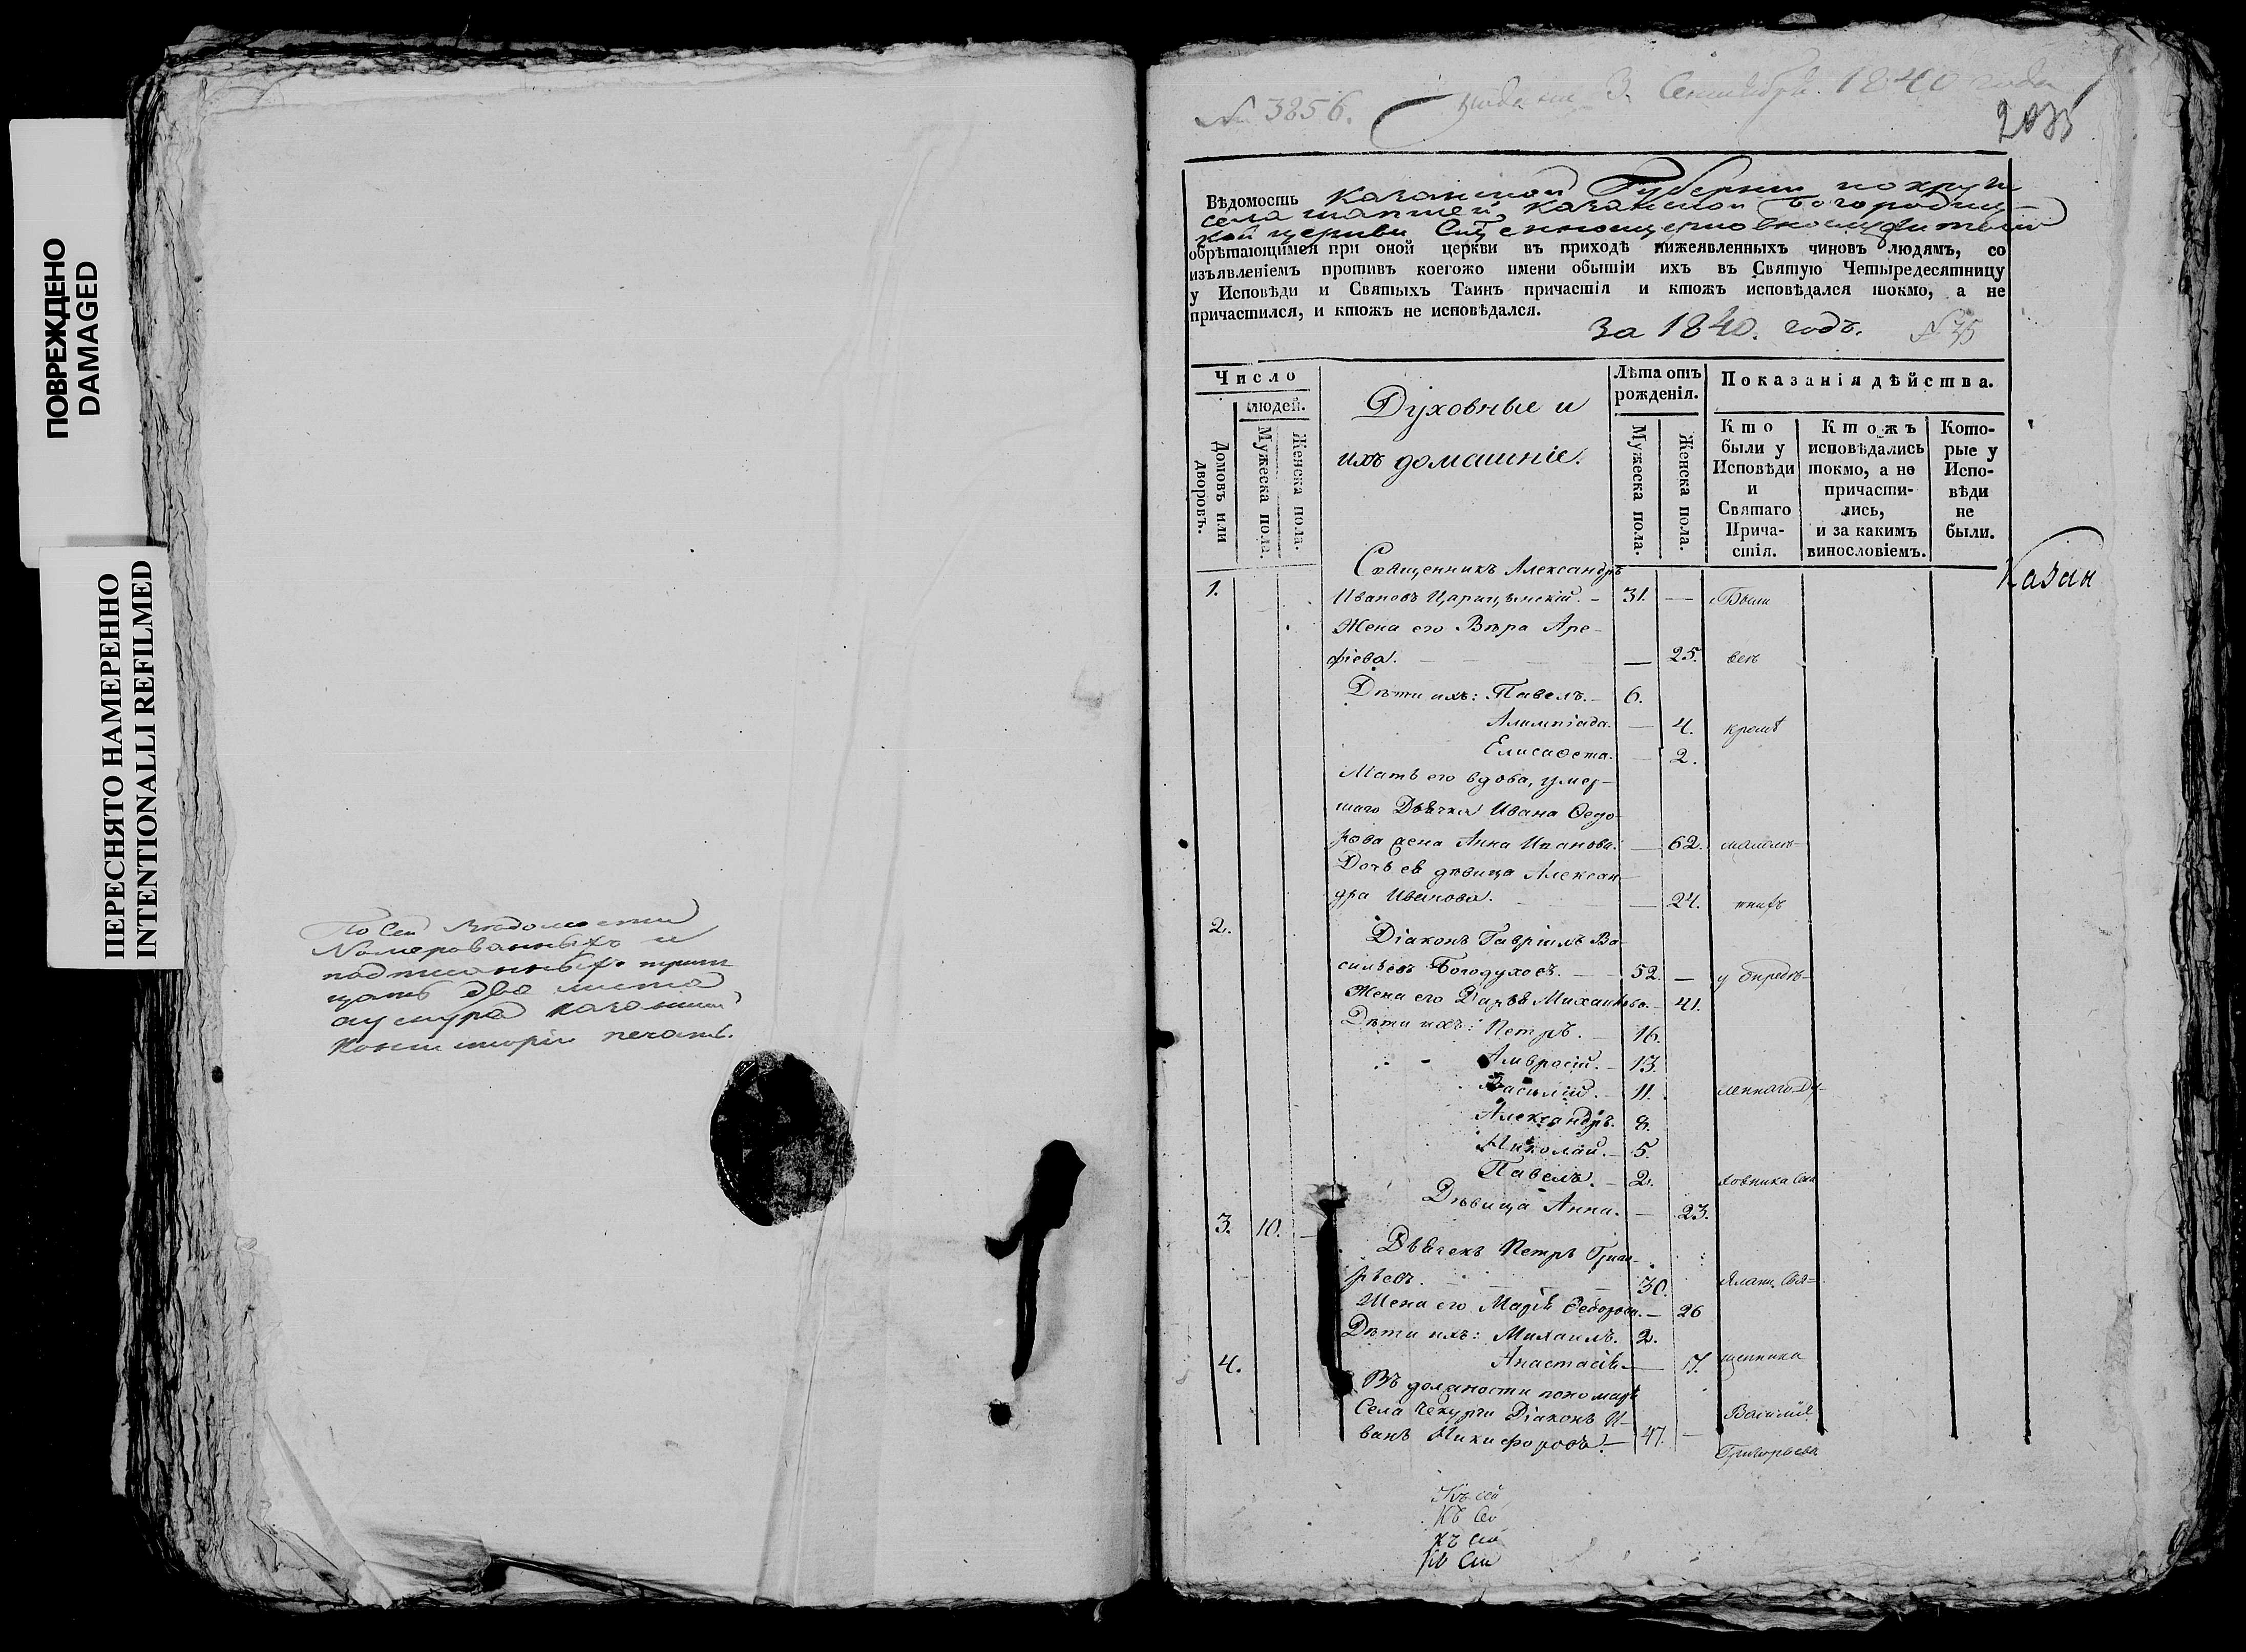 ПОВРЕЖДЕНО
DAMAGED
ПЕРЕСНЯТО НАМЕРЕННО
INTENTIONALLI REFILMED
По сей Вѣдомости
Номерованныхъ и
два листа
печать.
№ 3856.
3. Сентября. 1840 года
Вѣдомость Казанской Губерніи
села Казанской Богородиц-
кой церкви
обрѣтающимся при оной церкви въ приходѣ нижеявленныхъ чиновъ людямъ, со
изъявленіемъ противъ коегожо имени обытіи ихъ въ Святую Четыредесятницу
у Исповѣди и Святыхъ Таинъ причастія и ктожъ исповѣдался токмо, а не
причастился, и ктожъ не исповѣдался.
За 1840. годъ. № 35
Число
людей.
Домовъ или дворовъ.
Мужеска пола.
Женска пола.
Духовные и
ихъ домашніе.
Лѣта отъ
рожденія.
Мужеска пола.
Женска пола.
Показанія дѣйства.
Кто
были у
Исповѣди
и
Святаго
Прича-
стія.
Ктожъ
исповѣдались
токмо, а не
причасти-
лись,
и за какимъ
винословіемъ.
Кото-
рые у
Испо-
вѣди
не
были.
Казан
Священникъ Александръ
1. Ивановъ Царицынскій. — 31. — Были
Жена его Вѣра Аре-
фіева. — 25. всѣ
Дѣти ихъ: Павелъ. — 6.
Алимпіада. — 4. кромѣ
Елисавета. — 2.
Мать его вдова, умер-
шаго Дьячка Ивана Ѳедо-
рова жена Анна Иванова. — 62. малолѣ-
Дочь ея дѣвица Алексан-
дра Иванова. — 24. тнихъ
2. Діаконъ Гавріилъ Ва-
сильевъ Богодуховъ. — 52. — у опредѣ-
Жена его Дарья Михайлова. — 41.
Дѣти ихъ: Петръ. — 16.
Амвросій. — 13.
Василій. — 11. леннаго Ду-
Александръ. 8.
Николай. — 5.
Павелъ. — 2. ховника Села
Дѣвица Анна. — 23.
3. 10. —
Дьячекъ Петръ Григо-
рьевъ. — 30. Свя-
Жена его Марія Ѳедорова. — 26
Дѣти ихъ: Михаилъ. 2.
4. Анастасія — 17. щенника
Въ должности пономаря
Села Чекурчи Діаконъ И- Василія
ванъ Никифоровъ. — 47. —
Григорьева
Къ сей
Къ Се
Къ сей
Къ Сей